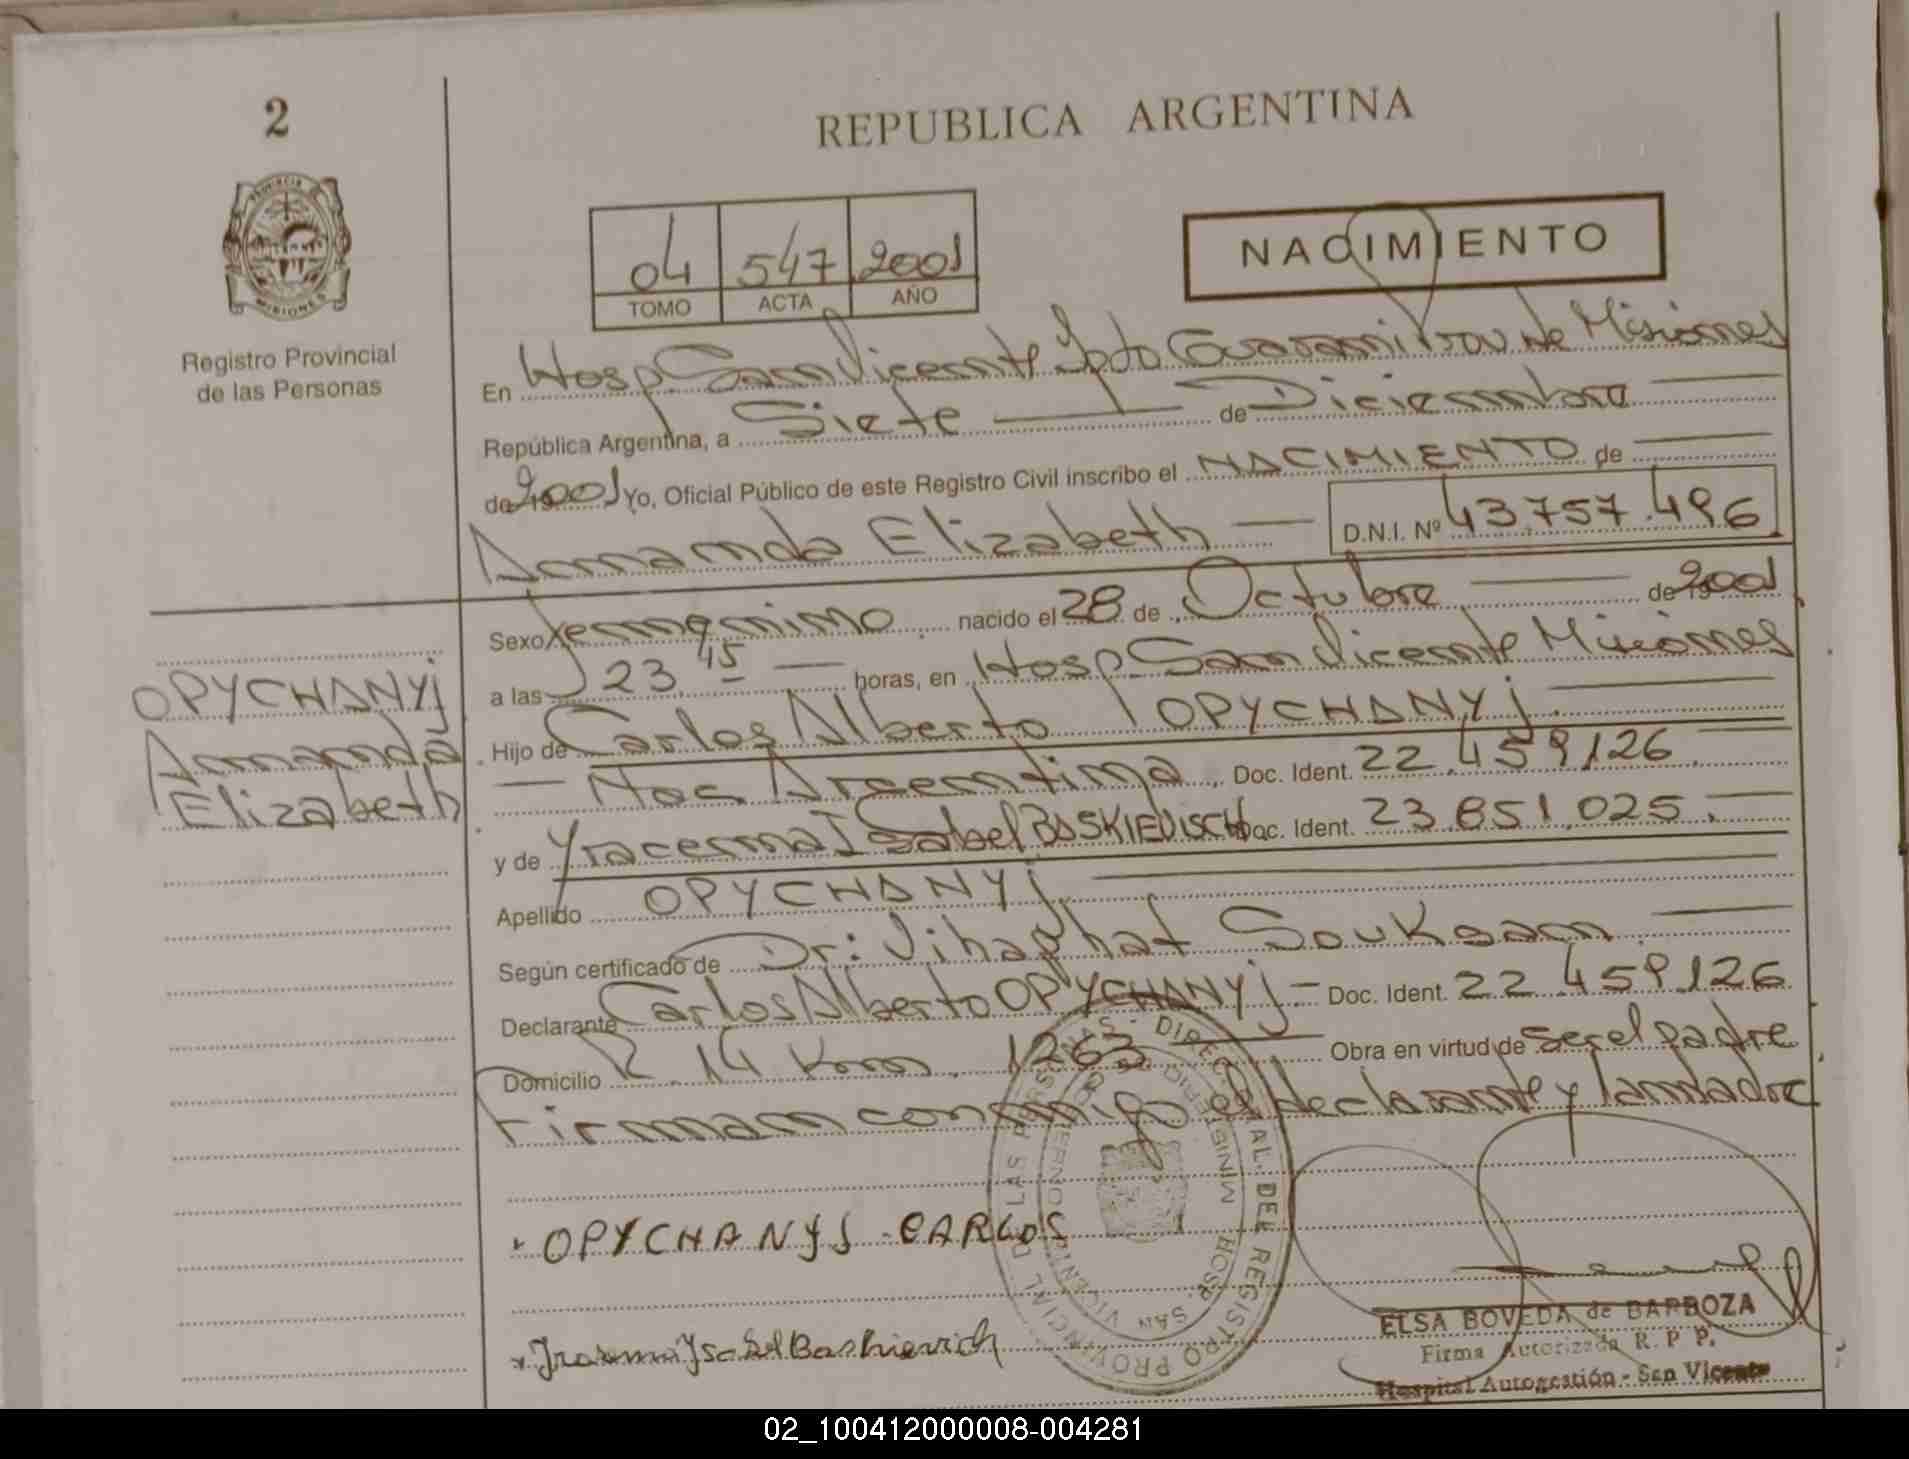 2
REPUBLICA ARGENTINA
PROVINCIA DE
MISIONES
Registro Provincial
de las Personas
04 547 2001
TOMO ACTA AÑO
NACIMIENTO
En Hosp San Vicente Dpto Guaraní Prov de Misiones
República Argentina, a Siete de Diciembre
de 2001 Yo, Oficial Público de este Registro Civil inscribo el NACIMIENTO de
Amanda Elizabeth D.N.I. Nº 43.757.496
Sexo femenino nacido el 28 de Octubre de 2001
a las 23 45 horas, en Hosp San Vicente Misiones
OPYCHANYj
Amanda
Elizabeth
Hijo de Carlos Alberto OPYCHANYj
Nac Argentina Doc. Ident. 22.459.126
y de Yracema Isabel BASKIEVISCH Doc. Ident. 23.851.025
Apellido OPYCHANYj
Según certificado de Dr: Vihaghat Souksam
Declarante Carlos Alberto OPYCHANYj Doc. Ident. 22 459.126
Domicilio R. 14 Km. 1263 Obra en virtud de ser el padre
Firman conmigo el declarante y la madre
OPYCHANYJ CARLOS
DIREC. DEL REGISTRO PROVINCIAL DE LAS PERSONAS
HOSP. SAN VICENTE
ELSA BOVEDA de BARBOZA
Firma Autorizada R. P. P.
Hospital Autogestión - San Vicente
02_100412000008-004281